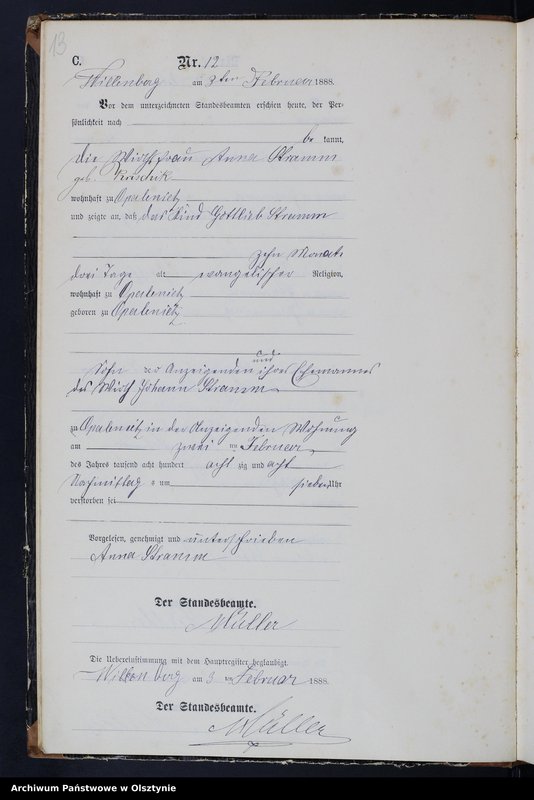 13
C.
Nr. 12
Willenberg am 3ten Februar 1888.
Vor dem unterzeichneten Standesbeamten erschien heute, der Per-
sönlichkeit nach
be kannt,
die Wirthsfrau Anna Stramm
geb.
wohnhaft zu Opalenietz
und zeigte an, daß das Kind Gottlieb Stramm
zehn Monate
drei Tage alt evangelischer Religion,
wohnhaft zu Opalenietz
geboren zu Opalenietz
Sohn der Anzeigenden und ihres Ehemannes
des Wirth Johann Stramm
zu Opalenietz in der Anzeigenden Wohnung
am zwei ten Februar
des Jahres tausend acht hundert acht zig und acht
Nachmittag s um sieben Uhr
verstorben sei
Vorgelesen, genehmigt und unterschrieben
Anna Stramm
Der Standesbeamte.
Müller
Die Uebereinstimmung mit dem Hauptregister beglaubigt.
Willenberg am 3 ten Februar 1888.
Der Standesbeamte.
Müller
Archiwum Państwowe w Olsztynie